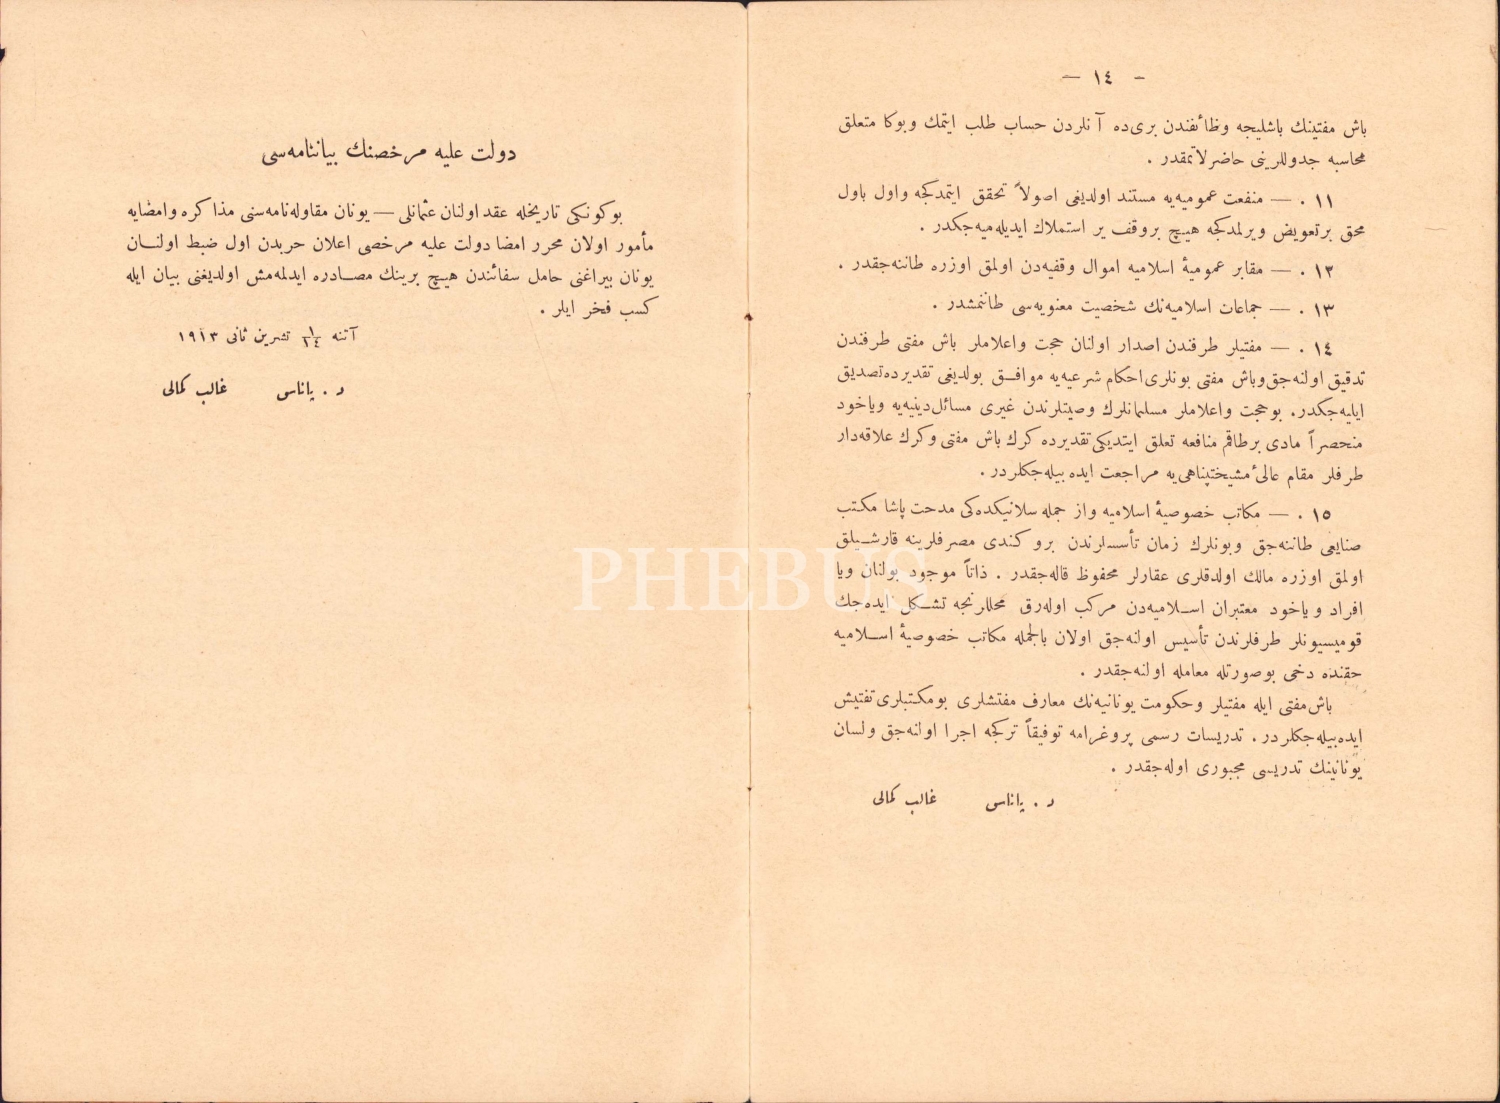 — ١٤ —
باش مفتينك باشليجه وظائفندن برى‌ده آنلردن حساب طلب ايتمك وبوكا متعلق
محاسبه جدوللرينى حاضرلاتمقدر .
١١ . — منفعت عموميه‌يه مستند اولديغى اصولاً تحقق ايتمدكجه واول باول
محق برتعويض ويرلمدكجه هيچ بروقف ير استملاك ايديله‌ميه‌جكدر .
١٢ . — مقابر عموميۀ اسلاميه اموال وقفيه‌دن اولمق اوزره طاننه‌جقدر .
١٣ . — جماعات اسلاميه‌نك شخصيت معنويه‌سى طانمشدر .
١٤ . — مفتيلر طرفندن اصدار اولنان حجت واعلاملر باش مفتى طرفندن
تدقيق اولنه‌جق وباش مفتى بونلرى احكام شرعيه‌يه موافق بولديغى تقديرده تصديق
ايليه‌جكدر. بوحجت واعلاملر مسلمانلرك وصيتلرندن غيرى مسائل دينيه‌يه وياخود
منحصراً مادى برطاقم منافعه تعلق ايتديكى تقديرده كرك باش مفتى وكرك علاقه‌دار
طرفلر مقام عالئ مشيختپناهى‌يه مراجعت ايده بيله‌جكلردر.
١٥ . — مكاتب خصوصيۀ اسلاميه واز جمله سلانيكده‌كى مدحت پاشا مكتب
صنايعى طاننه‌جق وبونلرك زمان تأسسلرندن برو كندى مصرفلرينه قارشيلق
اولمق اوزره مالك اولدقلرى عقارلر محفوظ قاله‌جقدر . ذاتاً موجود بولنان ويا
افراد وياخود معتبران اسلاميه‌دن مركب اوله‌رق محللرنجه تشكل ايده‌جك
قوميسيونلر طرفلرندن تأسيس اولنه‌جق اولان بالجمله مكاتب خصوصيۀ اسلاميه
حقنده دخى بوصورتله معامله اولنه‌جقدر .
باش مفتى ايله مفتيلر وحكومت يونانيه‌نك معارف مفتشلرى بومكتبلرى تفتيش
ايده‌بيله‌جكلردر. تدريسات رسمى پروغرامه توفيقاً تركجه اجرا اولنه‌جق ولسان
يونانينك تدريسى مجبورى اوله‌جقدر .
د . پاناس غالب كمالى
دولت عليه مرخصنك بياننامه‌سى
بوكونكى تاريخله عقد اولنان عثمانلى — يونان مقاوله‌نامه‌سنى مذاكره وامضايه
مأمور اولان محرر امضا دولت عليه مرخصى اعلان حربدن اول ضبط اولنان
يونان بيراغنى حامل سفائندن هيچ برينك مصادره ايدلمه‌مش اولديغنى بيان ايله
كسب فخر ايلر .
آتنه ١/١٤ تشرين ثانى ١٩١٣
د . پاناس غالب كمالى
PHEBUS